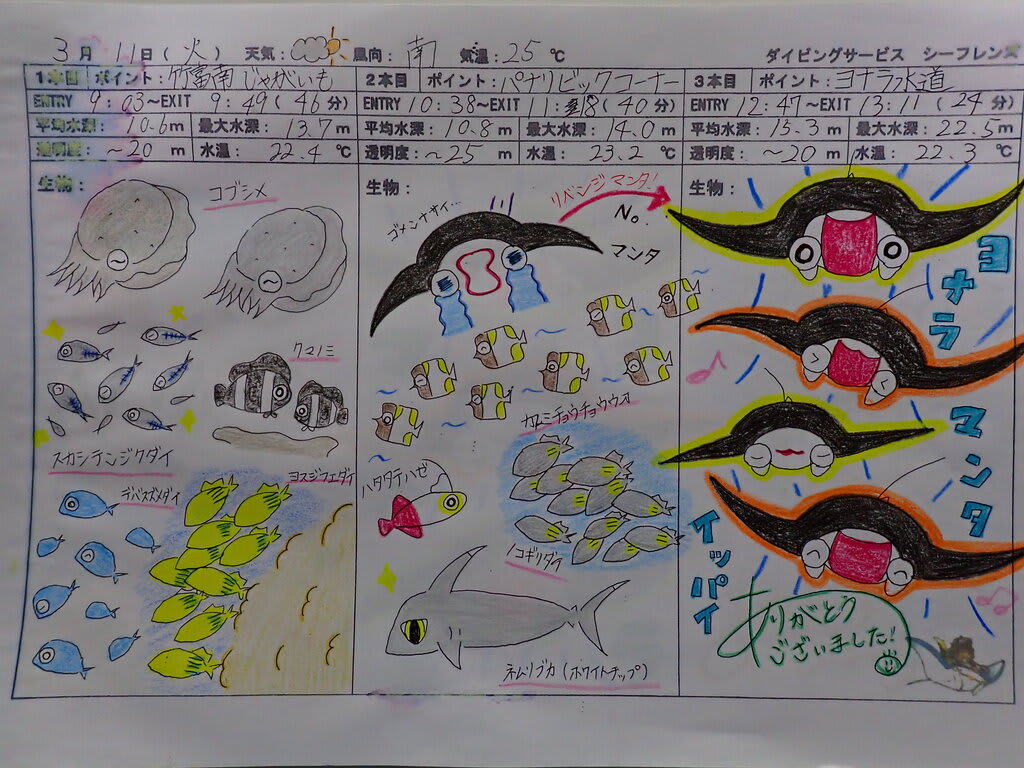 3月 11日(火) 天気: 風向: 南 気温: 25 ℃ ダイビングサービス シーフレンズ
1本目 ポイント: 竹富南じゃがいも
ENTRY 9:03～EXIT 9:49(46分)
平均水深: 10.6m 最大水深: 13.7m
透明度: ～20 m 水温: 22.4 ℃
生物:
コブシメ
クマノミ
スカシテンジクダイ
デバスズメダイ
ヨスジフエダイ
2本目 ポイント: パナリビックコーナー
ENTRY 10:38～EXIT 11:18(40分)
平均水深: 10.8m 最大水深: 14.0m
透明度: ～25 m 水温: 23.2 ℃
生物:
リベンジマンタ!
ゴメンナサイ…
No.
マンタ
カスミチョウチョウウオ
ハタタテハゼ
ノコギリダイ
ネムリブカ(ホワイトチップ)
3本目 ポイント: ヨナラ水道
ENTRY 12:47～EXIT 13:11(24分)
平均水深: 15.3m 最大水深: 22.5m
透明度: ～20 m 水温: 22.3 ℃
生物:
ヨナラ
マンタ
イッパイ
ありがとう
ございました!